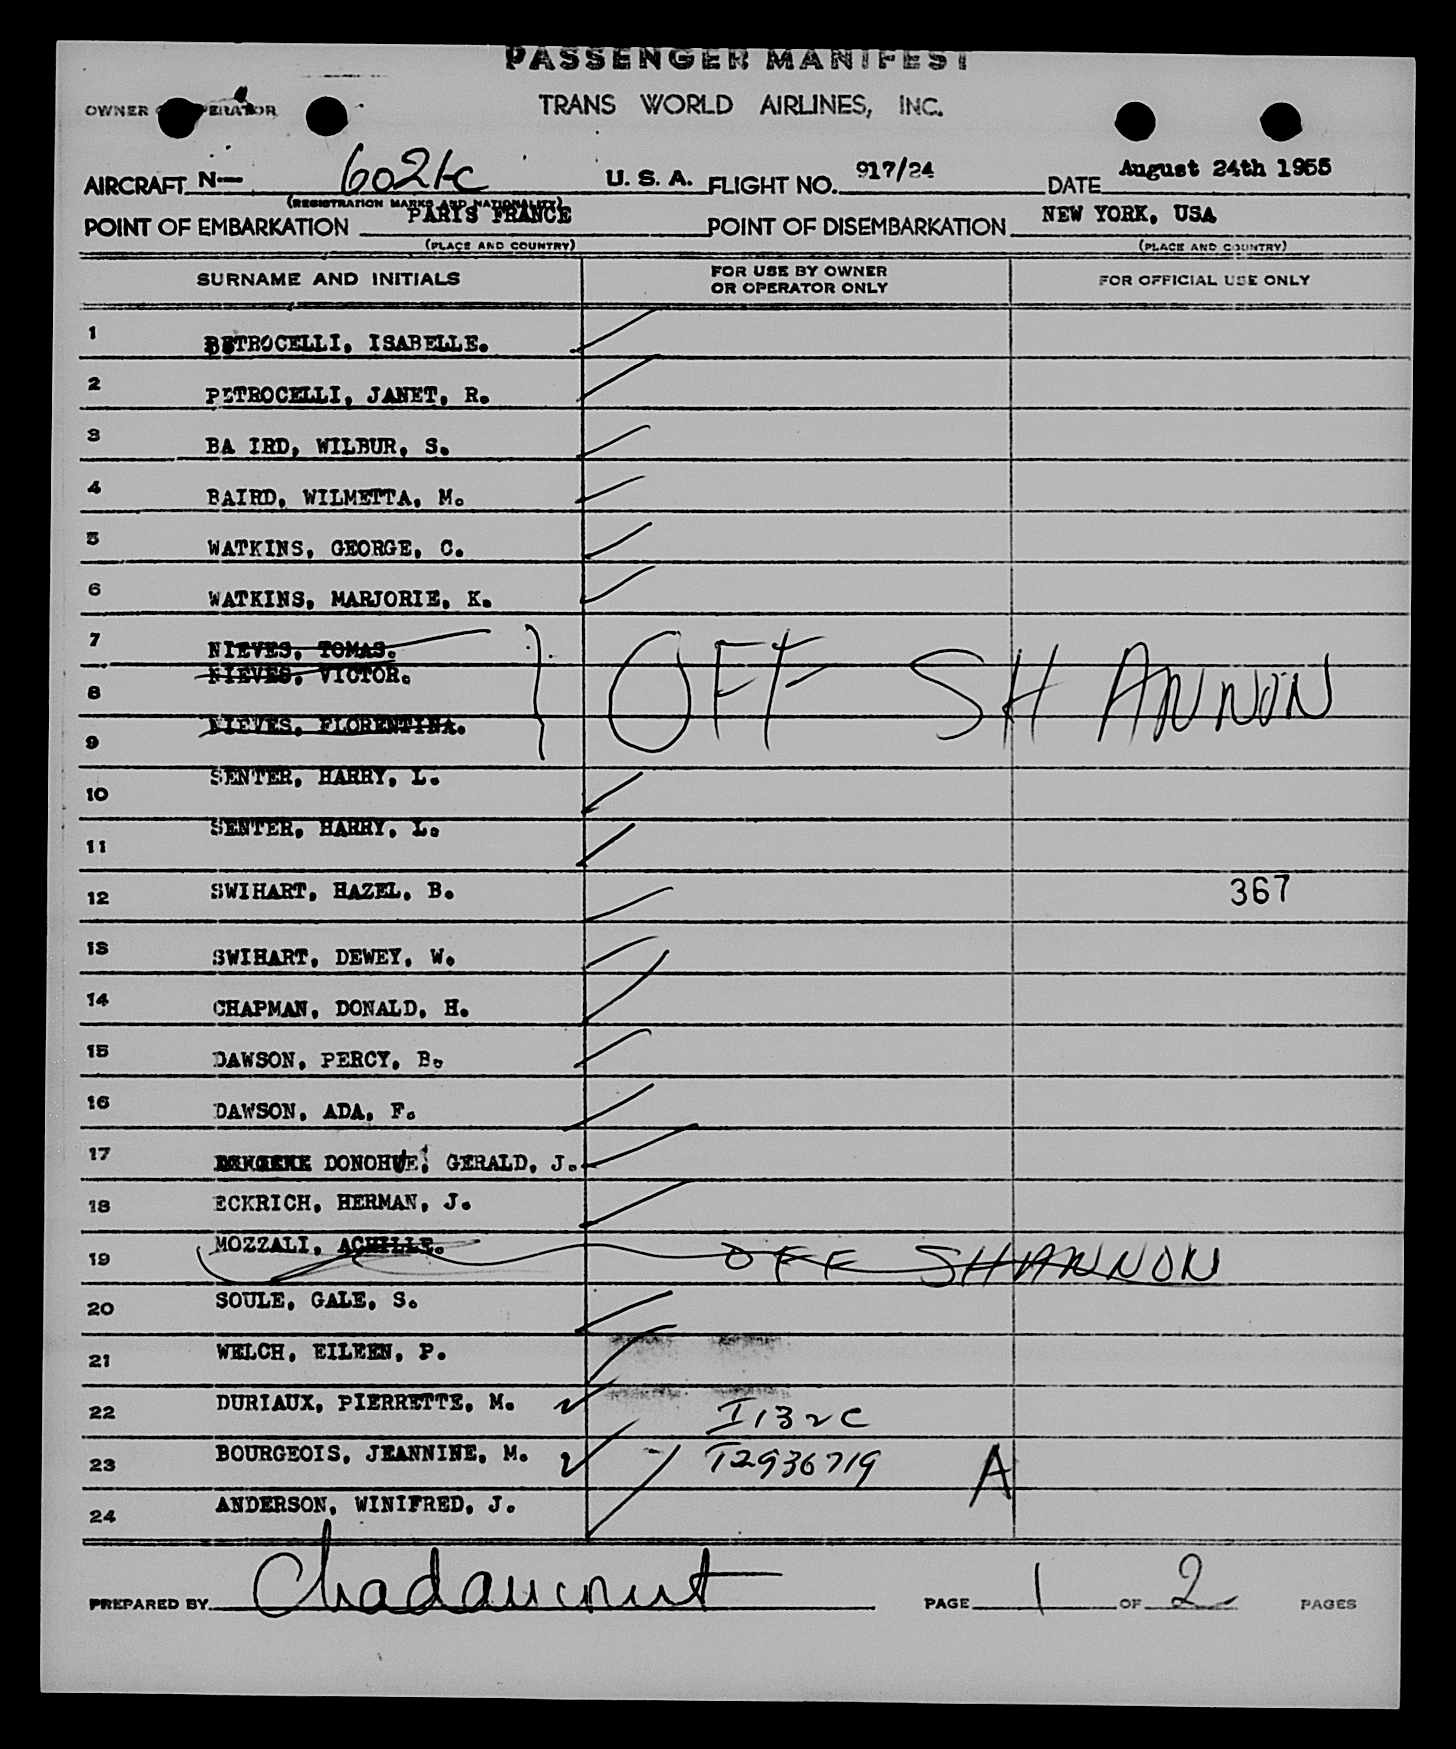 PASSENGER MANIFEST
OWNER OPERATOR TRANS WORLD AIRLINES, INC.
AIRCRAFT N— 6021C U. S. A. FLIGHT NO. 917/24 DATE August 24th 1955
(REGISTRATION MARKS AND NATIONALITY)
POINT OF EMBARKATION PARIS FRANCE POINT OF DISEMBARKATION NEW YORK, USA
(PLACE AND COUNTRY) (PLACE AND COUNTRY)
SURNAME AND INITIALS FOR USE BY OWNER OR OPERATOR ONLY FOR OFFICIAL USE ONLY
1 PETROCELLI, ISABELLE.
2 PETROCELLI, JANET, R.
3 BA IRD, WILBUR, S.
4 BAIRD, WILMETTA, M.
5 WATKINS, GEORGE, C.
6 WATKINS, MARJORIE, K.
7 NIEVES, TOMAS.
8 NIEVES, VICTOR. OFF SHANNON
9 NIEVES, FLORENTINA.
10 SENTER, HARRY, L.
11 SENTER, HARRY, L.
12 SWIHART, HAZEL, B. 367
13 SWIHART, DEWEY, W.
14 CHAPMAN, DONALD, H.
15 DAWSON, PERCY, B.
16 DAWSON, ADA, F.
17 DONOHUE, GERALD, J.
18 ECKRICH, HERMAN, J.
19 MOZZALI, ACHILLE. OFF SHANNON
20 SOULE, GALE, S.
21 WELCH, EILEEN, P.
22 DURIAUX, PIERRETTE, M. I132C
23 BOURGEOIS, JEANNINE, M. T2936719 A
24 ANDERSON, WINIFRED, J.
PREPARED BY Chadaucourt PAGE 1 OF 2 PAGES